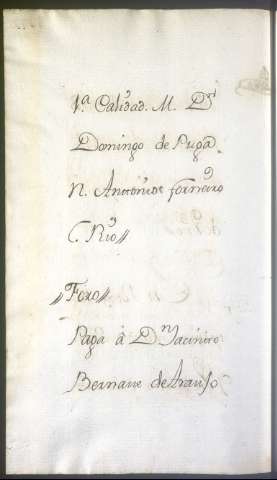 1.ª Calidad. M. Dn
Domingo de Puga
N. Anttonio de forneiro
C. Rio//
//Foro//
Paga á Dn Jacintto
Bernave de Araujo